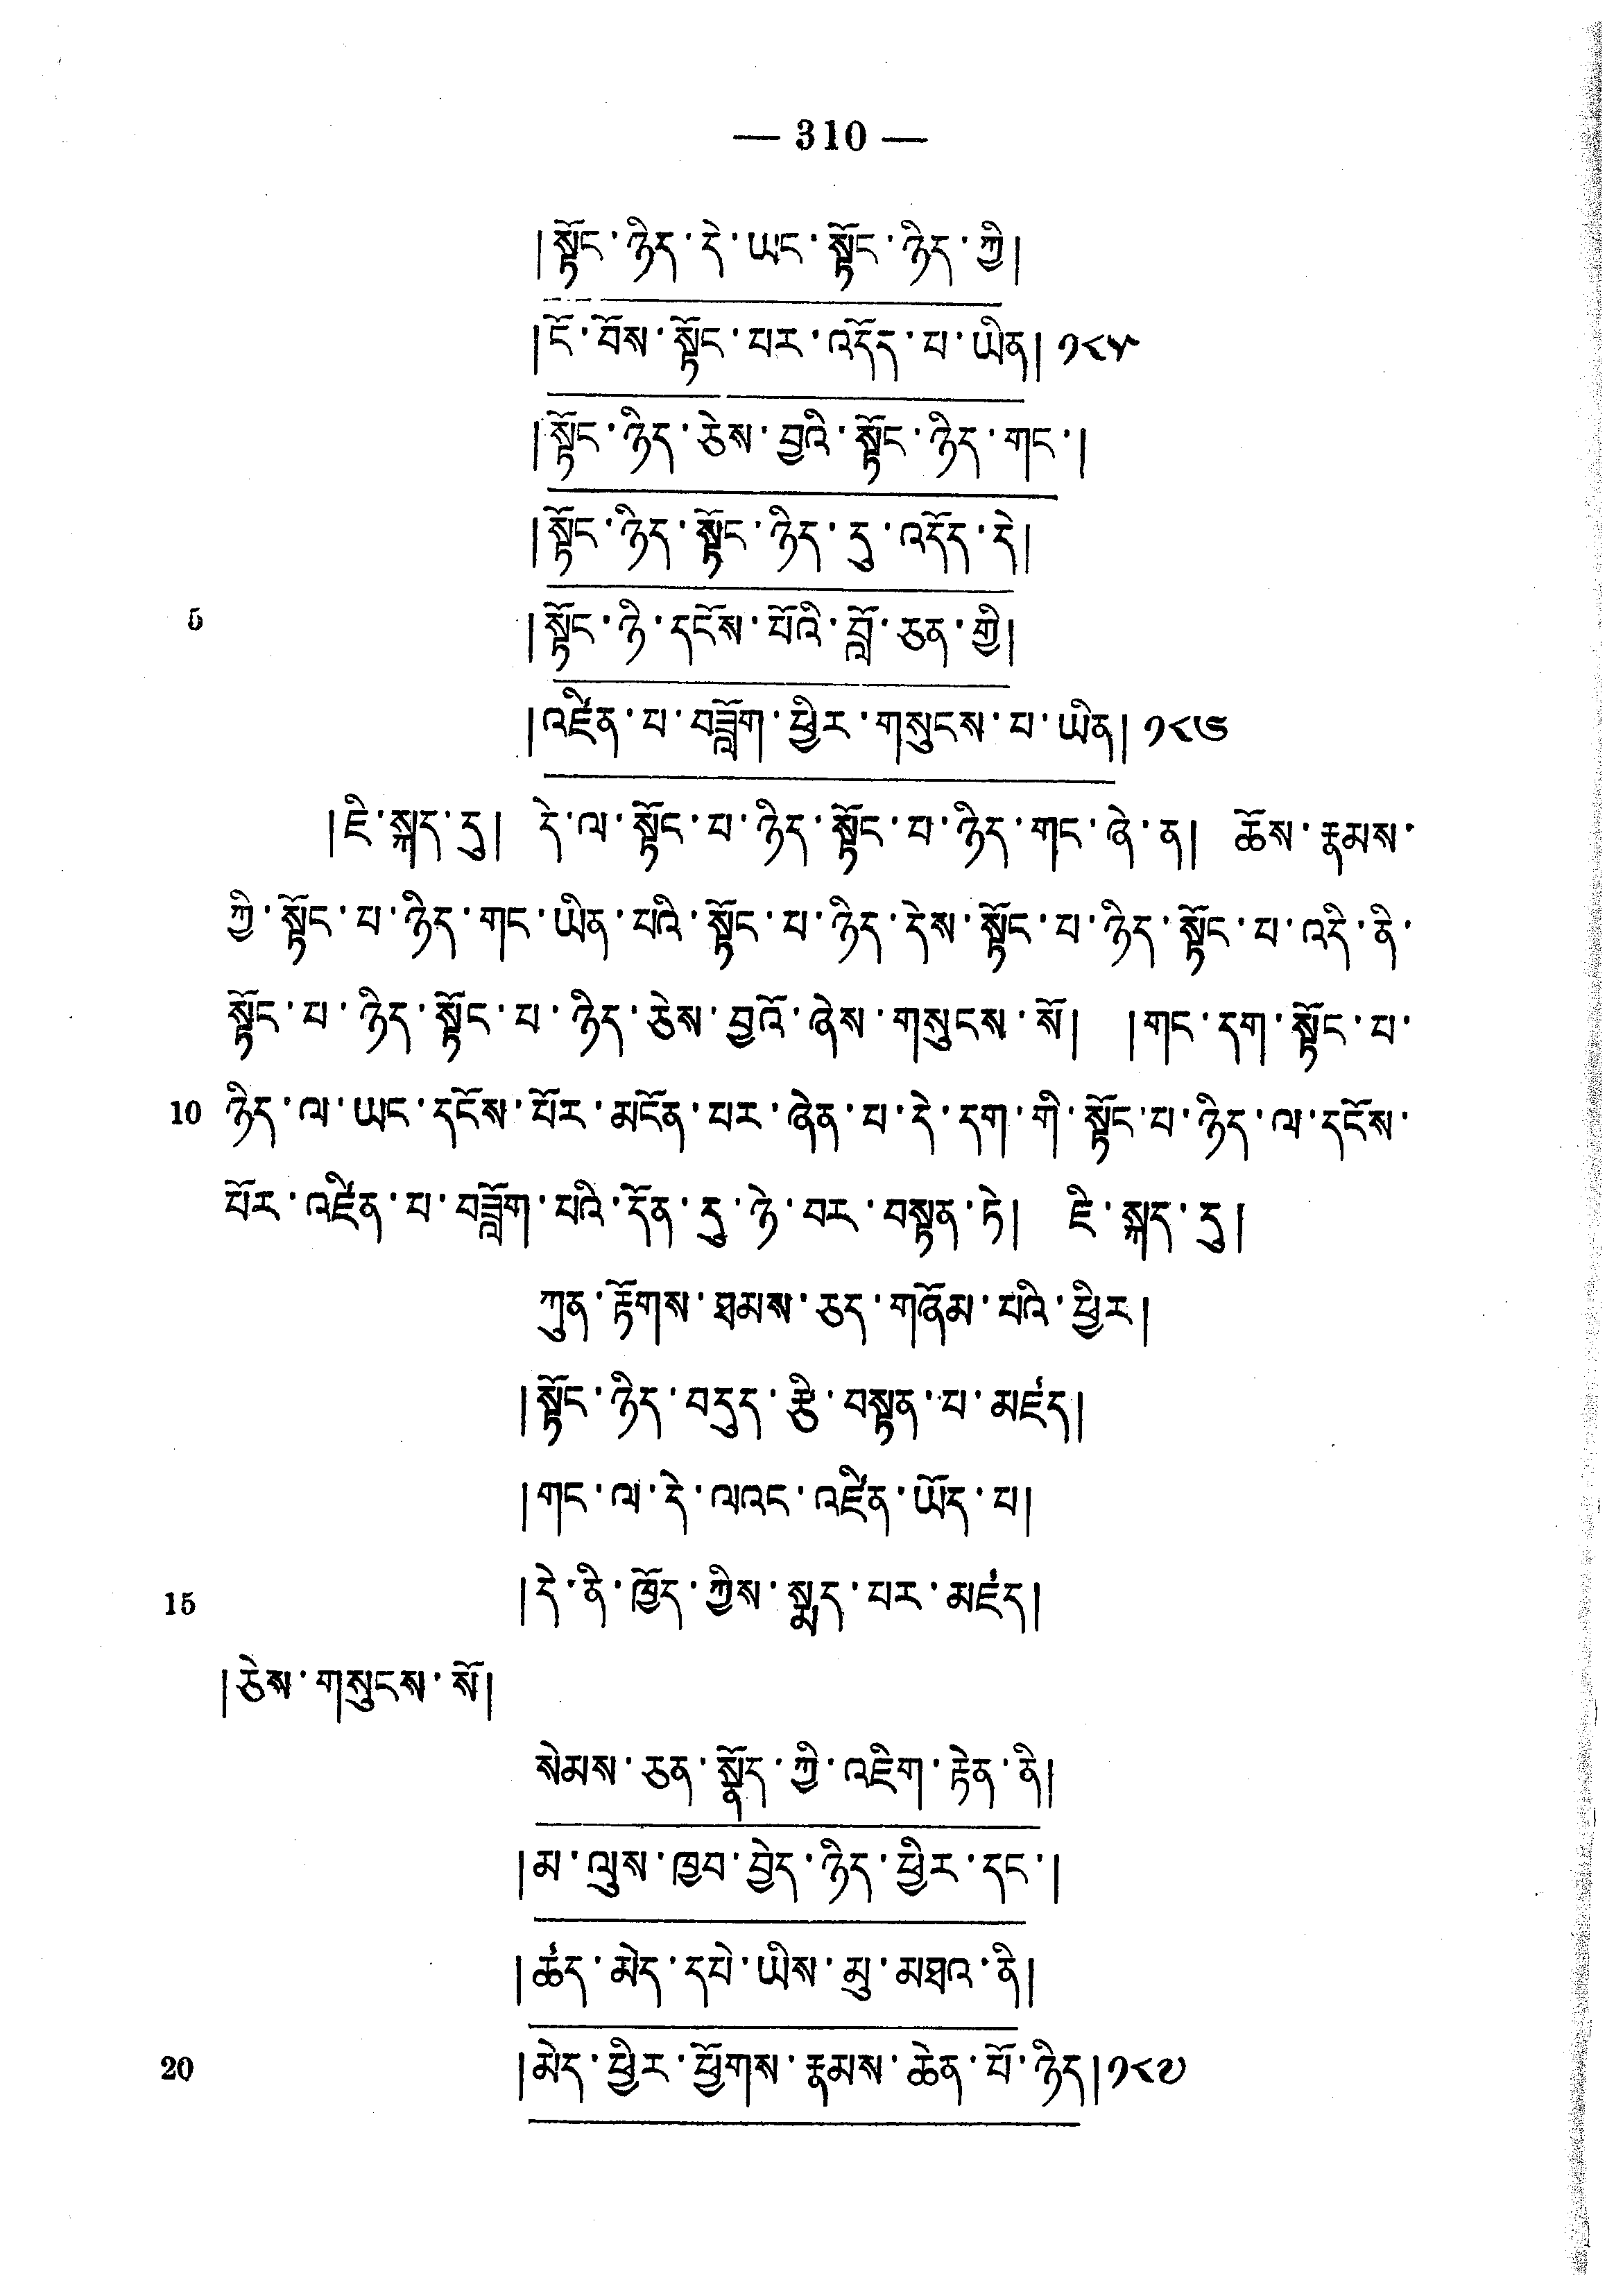 — 310 —
།སྟོང་ཉིད་དེ་ཡང་སྟོང་ཉིད་ཀྱི།
།ངོ་བོས་སྟོང་པར་འདོད་པ་ཡིན། ༡༨༥
།སྟོང་ཉིད་ཅེས་བྱའི་སྟོང་ཉིད་གང་།
།སྟོང་ཉིད་སྟོང་ཉིད་དུ་འདོད་དེ།
5 །སྟོང་ཉི་དངོས་པོའི་བློ་ཅན་གྱི།
།འཛིན་པ་བཟློག་ཕྱིར་གསུངས་པ་ཡིན། ༡༨༦
།ཇི་སྐད་དུ། དེ་ལ་སྟོང་པ་ཉིད་སྟོང་པ་ཉིད་གང་ཞེ་ན། ཆོས་རྣམས་
ཀྱི་སྟོང་པ་ཉིད་གང་ཡིན་པའི་སྟོང་པ་ཉིད་དེས་སྟོང་པ་ཉིད་སྟོང་པ་འདི་ནི་
སྟོང་པ་ཉིད་སྟོང་པ་ཉིད་ཅེས་བྱའོ་ཞེས་གསུངས་སོ། །གང་དག་སྟོང་པ་
10 ཉིད་ལ་ཡང་དངོས་པོར་མངོན་པར་ཞེན་པ་དེ་དག་གི་སྟོང་པ་ཉིད་ལ་དངོས་
པོར་འཛིན་པ་བཟློག་པའི་དོན་དུ་ཉེ་བར་བསྟན་ཏེ། ཇི་སྐད་དུ།
ཀུན་རྟོགས་ཐམས་ཅད་གཞོམ་པའི་ཕྱིར།
།སྟོང་ཉིད་བདུད་རྩི་བསྟན་པ་མཛད།
།གང་ལ་དེ་ལའང་འཛིན་ཡོད་པ།
15 །དེ་ནི་ཁྱོད་ཀྱིས་སྨད་པར་མཛད།
།ཅེས་གསུངས་སོ།
སེམས་ཅན་སྣོད་ཀྱི་འཇིག་རྟེན་ནི།
།མ་ལུས་ཁྱབ་བྱེད་ཉིད་ཕྱིར་དང་།
།ཚད་མེད་དཔེ་ཡིས་མུ་མཐའ་ནི།
20 །མེད་ཕྱིར་ཕྱོགས་རྣམས་ཆེན་པོ་ཉིད།༡༨༧